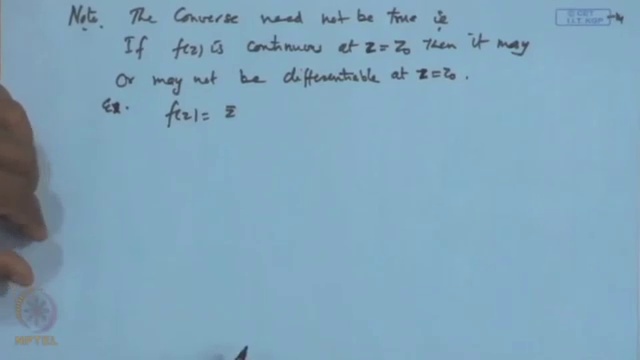 Note. The Converse need not be true ie
If f(z) is continuous at z = z₀ then it may
Or may not be differentiable at z = z₀.
Ex. f(z) = z̄
© CET
I.I.T. KGP
NPTEL